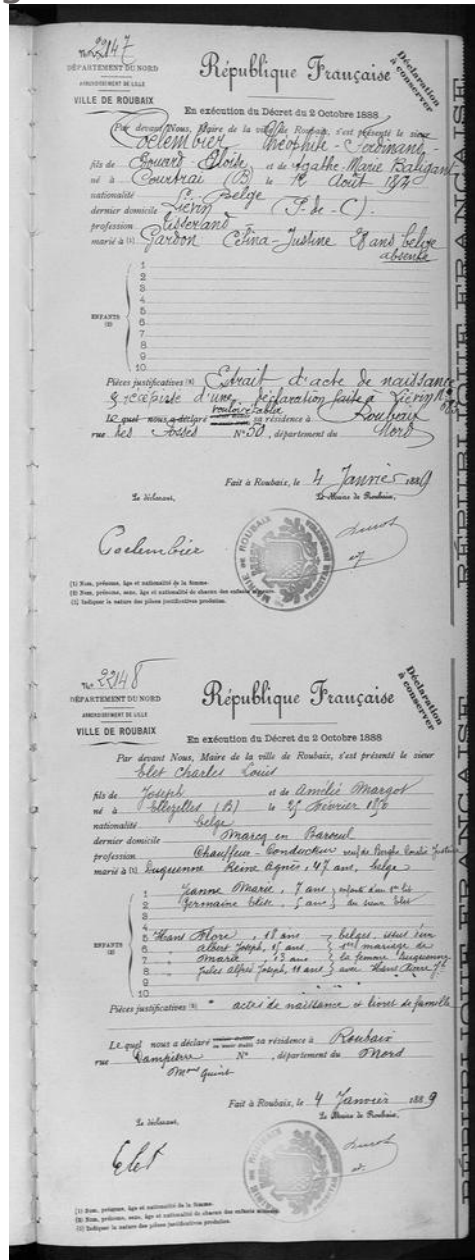 No 22147
DÉPARTEMENT DU NORD
ARRONDISSEMENT DE LILLE
VILLE DE ROUBAIX
République Française
Déclaration à conserver
En exécution du Décret du 2 Octobre 1888
Par devant Nous, Maire de la ville de Roubaix, s'est présenté le sieur
Coelembier Théophile - Ferdinand -
fils de Edouard - Eloïse et de Agathe-Marie Baligant
né à Courtrai (B) le 12 Août
nationalité Belge
dernier domicile Liévin (P-de-C).
profession Tisserand
marié à (1) Gardon Célina-Justine 28 ans belge
absente
ENFANTS
(2)
1
2
3
4
5
6
7
8
9
10
Pièces justificatives (3) Extrait d'acte de naissance
& récépissé d'une déclaration faite à Liévin No
Le quel nous a déclaré vouloir établir sa résidence à Roubaix
rue des Fossés No 50, département du Nord
Fait à Roubaix, le 4 Janvier 1889
Le déclarant,
Le Maire de Roubaix,
Coelembier
MAIRIE DE ROUBAIX
(1) Nom, prénoms, âge et nationalité de la femme.
(2) Nom, prénoms, sexe, âge et nationalité de chacun des enfants mineurs.
(3) Indiquer la nature des pièces justificatives produites.
No 22148
DÉPARTEMENT DU NORD
ARRONDISSEMENT DE LILLE
VILLE DE ROUBAIX
République Française
Déclaration à conserver
En exécution du Décret du 2 Octobre 1888
Par devant Nous, Maire de la ville de Roubaix, s'est présenté le sieur
Elet Charles Louis
fils de Joseph et de Amélie Margot
né à Ellezelles (B) le 25 Février
nationalité belge
dernier domicile Marcq en Baroeul
profession Chauffeur - Conducteur veuf de
marié à (1) Duquenne Reine Agnès, 47 ans, belge
ENFANTS
(2)
1 Jeanne Marie, 7 ans } enfants d'un 1er lit
2 Germaine Elise, 5 ans } du sieur Elet
3
4
5 Flore, 18 ans } belges, issus d'un
6 Albert Joseph, 15 ans } 1er mariage de
7 Marie, 13 ans } la femme Duquenne
8 Jules Alfred Joseph, 11 ans } avec
9
10
Pièces justificatives (3) actes de naissance et livret de famille
Le quel nous a déclaré sa résidence à Roubaix
rue Dampierre No , département du Nord
Mson Quint
Fait à Roubaix, le 4 Janvier 1889
Le déclarant,
Le Maire de Roubaix,
Elet
MAIRIE DE ROUBAIX
(1) Nom, prénoms, âge et nationalité de la femme.
(2) Nom, prénoms, sexe, âge et nationalité de chacun des enfants mineurs.
(3) Indiquer la nature des pièces justificatives produites.
RÉPUBLIQUE FRANÇAISE
RÉPUBLIQUE FRANÇAISE